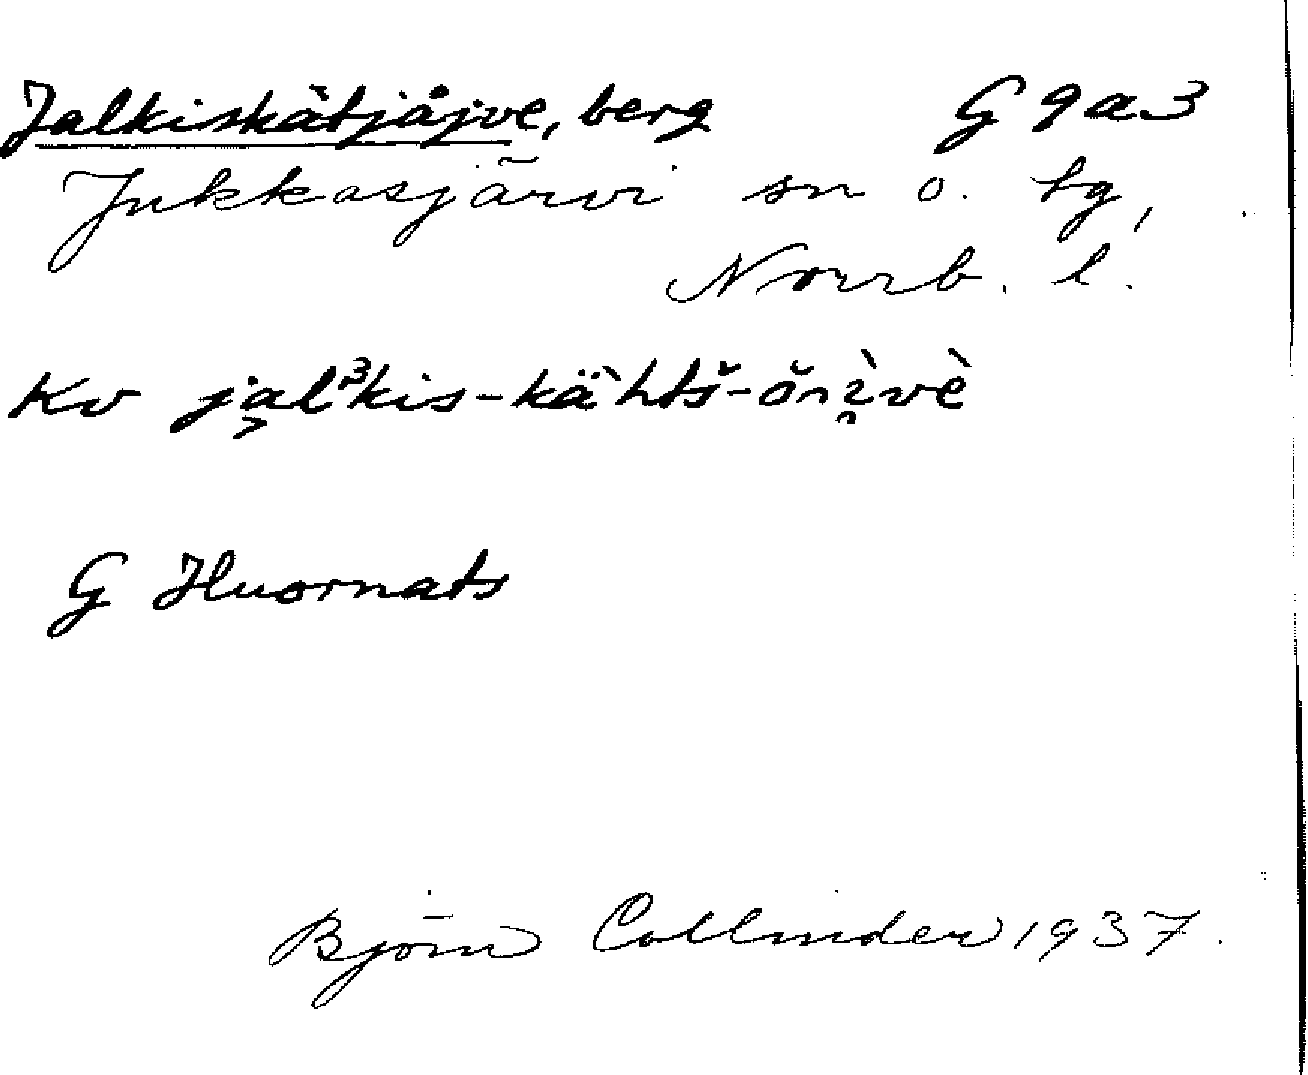 Jalkiskätjåjve, berg G 9 a 3
Jukkasjärvi sn o. tg,
Norrb. l.
Kv jalʒkis-kähtš-
G Huornats
Björn Collinder 1937.